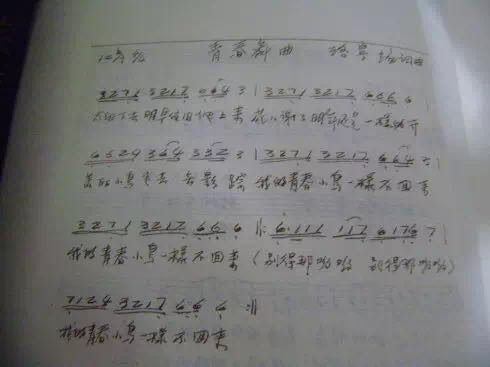 青春舞曲
3271 3217 664 3 | 3271 3217 666 6 |
太阳下去明早依旧爬上来 花儿谢了明年还是一样的开
364 332 3 | 3271 3217 664 3 |
美丽小鸟飞去无影踪 我的青春小鸟一样不回来
3271 3217 66 6 ‖: 6·111 117 6176 7 |
我的青春小鸟一样不回来 (别得那哟哟 别得那哟哟)
7124 3217 66 6 :‖
我的青春小鸟一样不回来